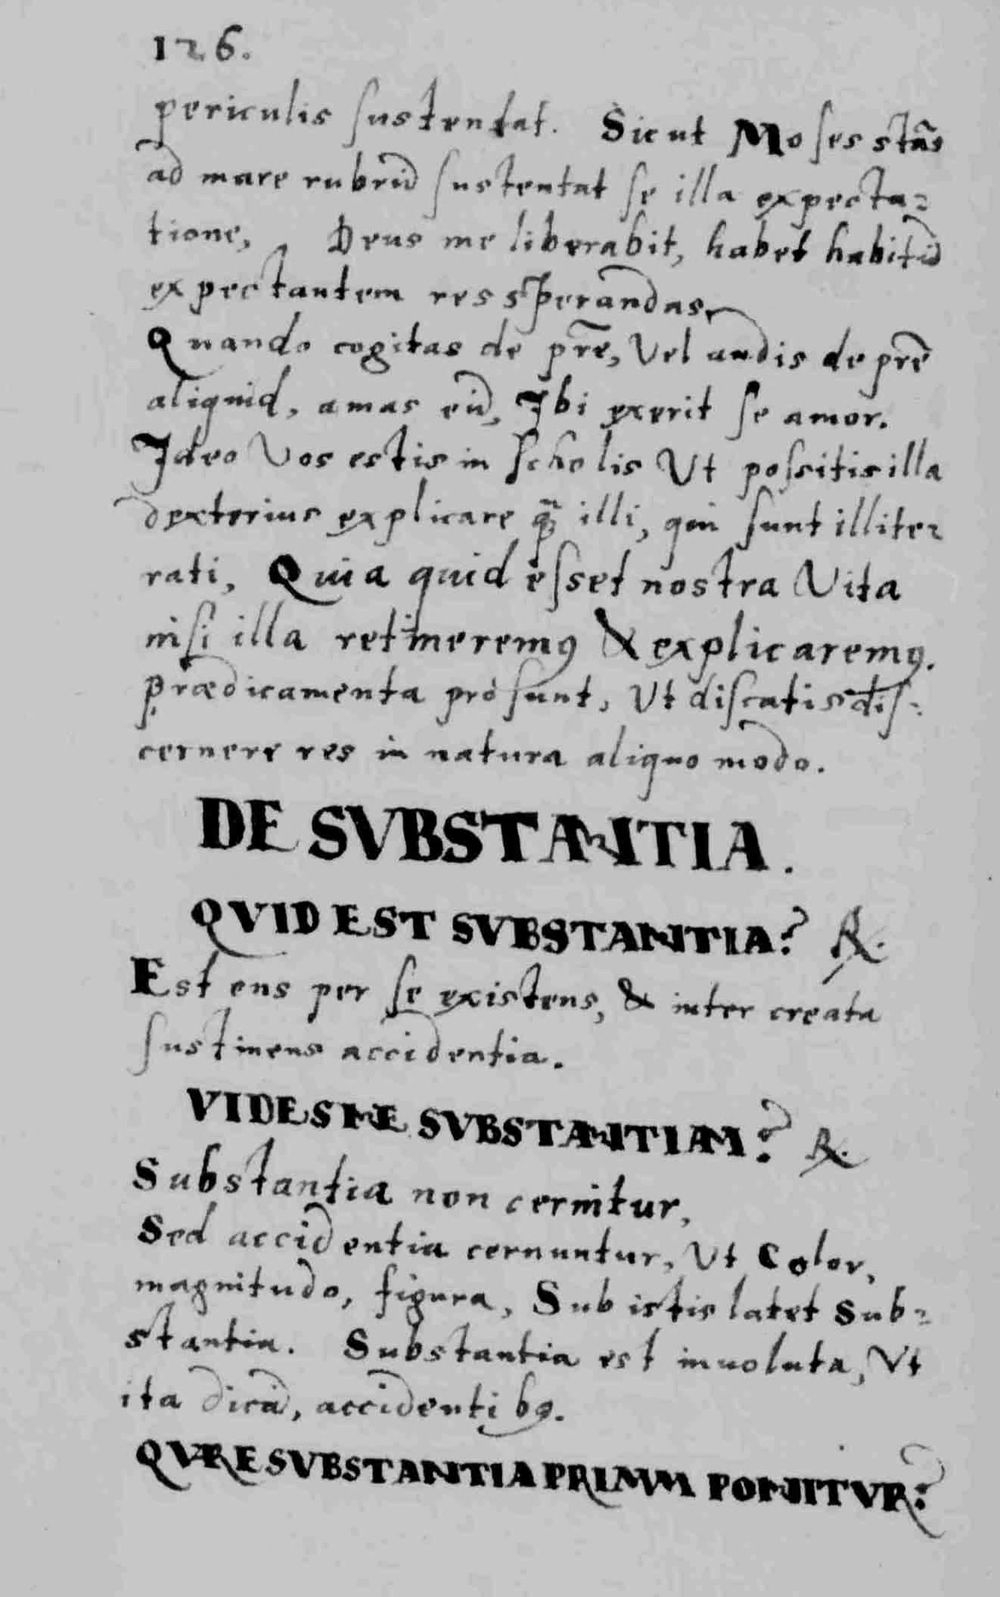 126.
periculis sustentat. Sicut Moses stãs
ad mare rubrũ sustentat se illa expecta-
tione, Deus me liberabit, habet habitũ
expectantem res sperandas,
Quando cogitas de prẽ, Vel audis de prẽ
aliquid, amas eũ, Ibi exerit se amor.
Ideo Vos estis in scholis Ut possitis illa
dexterius explicare quã illi, qui sunt illite-
rati, Quia quid esset nostra Vita
nisi illa retineremꝰ & explicaremꝰ.
Prædicamenta prosunt, Ut discatis dis-
cernere res in natura aliquo modo.
DE SVBSTANTIA.
QVID EST SVBSTANTIA? ℞.
Est ens per se existens, & inter creata
sustinens accidentia.
VIDESNE SVBSTANTIAM? ℞.
Substantia non cernitur,
Sed accidentia cernuntur, Ut Color,
magnitudo, figura, Sub istis latet Sub-
stantia. Substantia est inuoluta, Ut
ita dicã, accidentibꝰ.
QVARE SVBSTANTIA PRIMVM PONITVR?